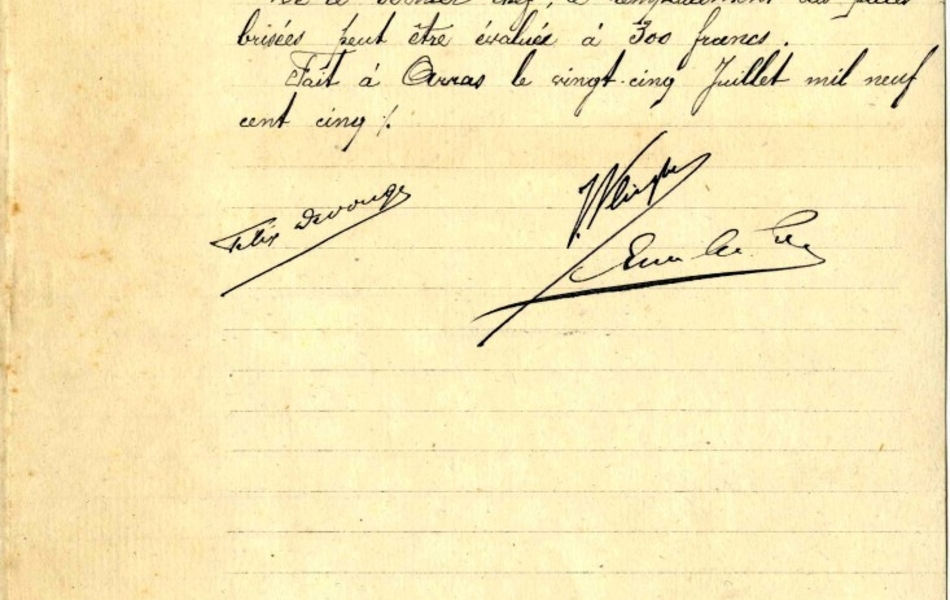 De ce dernier chef, le remplacement des pièces
brisées peut être évalué à 300 francs.
Fait à Arras le vingt-cinq Juillet mil neuf
cent cinq ⁒
Felix Devouge